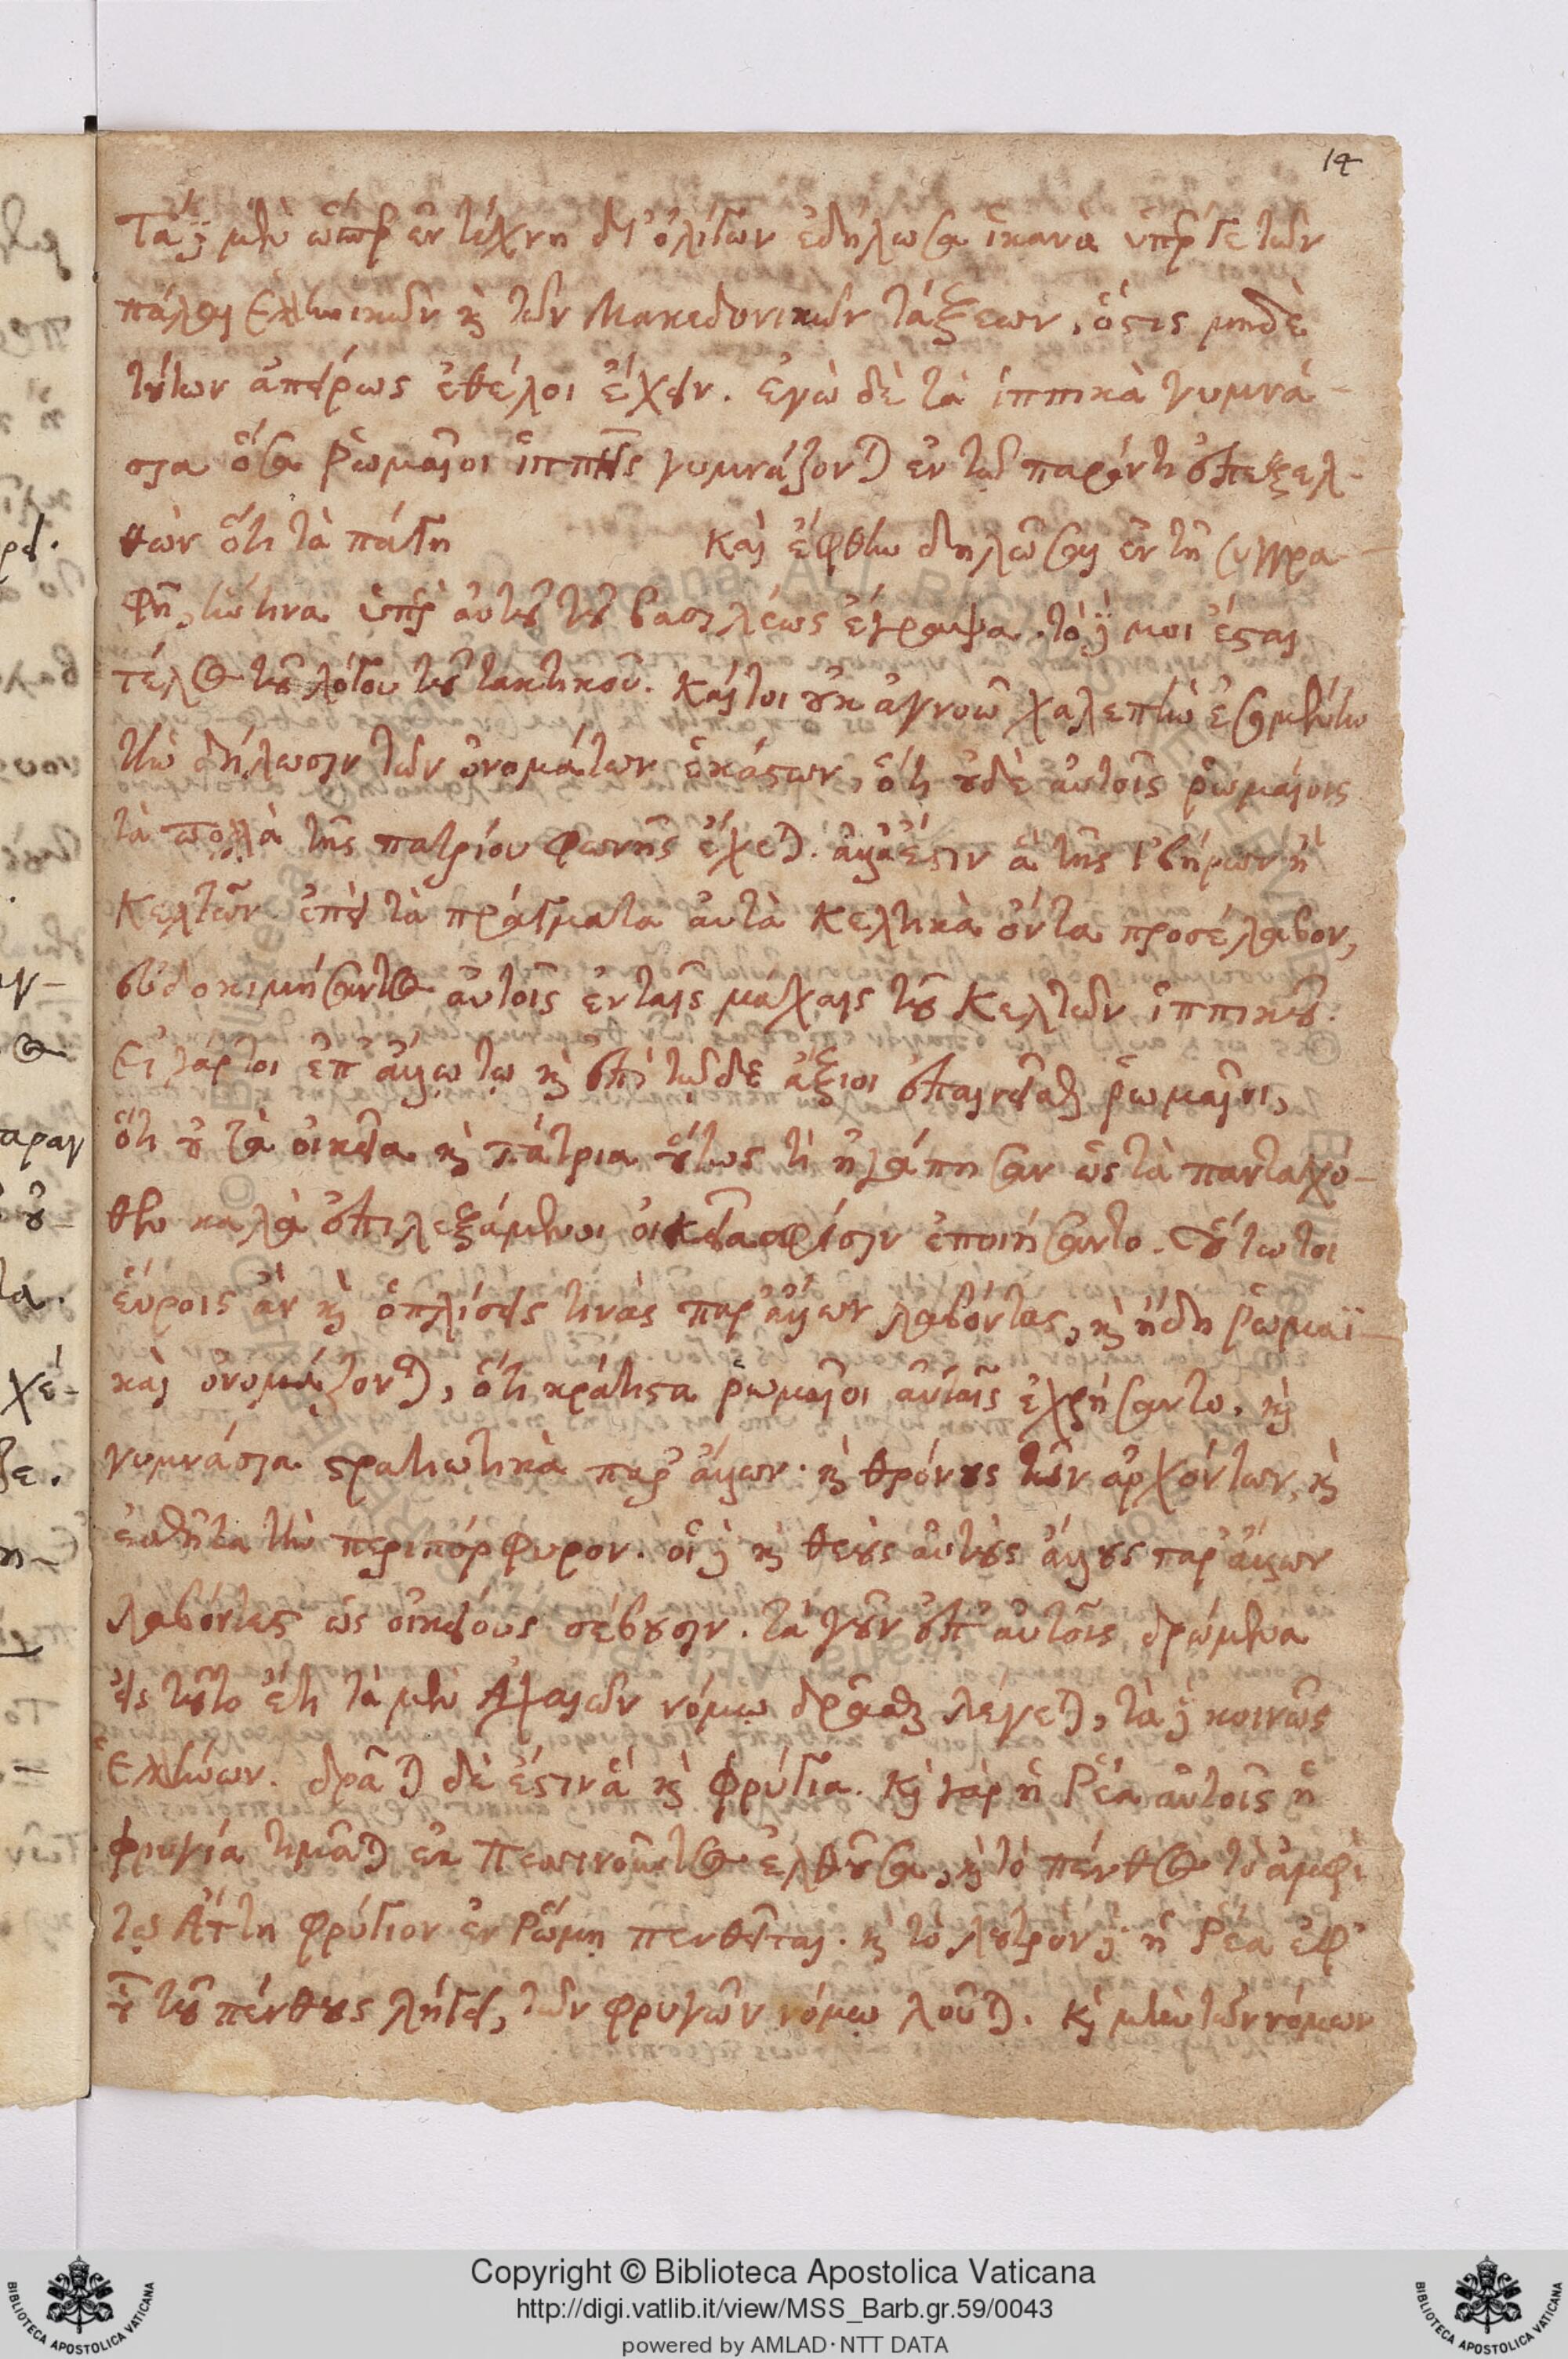 14
Τάδε μὲν ὥσπερ ἐν τέχνη δι' ὀλίγων ἐδήλωσα ἱκανὰ ὑπέρ γε τῶν
πάλαι Ἑλληνικῶν κ̀ τῶν Μακεδονικῶν τάξεων, ὅστις μηδὲ
τούτων ἀπείρως ἐθέλοι ἔχειν. ἐγὼ δὲ τὰ ἱππικὰ γυμνά-
σια ὅσα Ῥωμαῖοι ἱππῆς γυμνάζονται ἐν τῷ παρόντι ἐπεξελ-
θὼν ὅτι τὰ πάγη καὶ ἔφθην δηλῶσαι ἐν τῆ συγγρα-
φῆ, ἥντινα ὑπὲρ αὐτοῦ τοῦ βασιλέως ἔγραψα. τόδε μοι ἔσται
τέλος τοῦ λόγου τοῦ τακτικοῦ. Καίτοι οὐκ ἀγνοῶ χαλεπὴν ἐσομένην
τὴν δήλωσιν τῶν ὀνομάτων ἑκάστων, ὅτι οὐδὲ αὐτοῖς ῥωμαίοις
τὰ πολλὰ τῆς πατρίου φωνῆς ἔχεται. ἀλλὰ ἔστιν ἃ τῆς Ἰβήρων ἢ
Κελτῶν. ἐπεὶ τὰ πράγματα αὐτὰ Κελτικὰ ὄντα προσέλαβον,
εὐδοκιμήσαντος αὐτοῖς ἐν ταῖς μάχαις τοῦ Κελτῶν ἱππικοῦ.
Εἰ γάρ τοι ἐπ' ἄλλῳ τῳ κ̀ ἐπὶ τῷδε ἄξιοι ἐπαινεῖσθαι ῥωμαῖοι,
ὅτι οὐ τὰ οἰκεῖα κ̀ πάτρια οὕτως τι ἠγάπησαν ὡς τὰ πανταχό-
θεν καλὰ ἐπιλεξάμενοι οἰκεῖα σφίσιν ἐποιήσαντο. Οὕτω τοι
εὕροις ἂν κ̀ ὁπλίσεις τινὰς παρ' ἄλλων λαβόντας, κ̀ ἤδη Ῥωμαϊ-
καὶ ὀνομάζονται, ὅτι κράτιστα ῥωμαῖοι αὐταῖς ἐχρήσαντο. κ̀
γυμνάσια στρατιωτικὰ παρ' ἄλλων. κ̀ θρόνους τῶν ἀρχόντων, κ̀
ἐσθῆτα τὴν περιπόρφυρον. οἱ δὲ κ̀ θεοὺς αὐτοὺς ἄλλους παρ' ἄλλων
λαβόντες ὡς οἰκείους σέβουσιν. τὰ γοῦν ἐπ' αὐτοῖς δρώμενα
εἰς τοῦτο ἔτι τὰ μὲν Ἀχαιῶν νόμῳ δρᾶσθαι λέγεται, τὰ δὲ κοινῶς
Ἑλλήνων. δρᾶται δὲ ἔστιν ἃ κ̀ φρύγια. κ̀ γὰρ ἡ Ῥέα αὐτοῖς ἡ
φρυγία τιμᾶται ἐκ Πεσινοῦντος ἐλθοῦσα, κ̀ τὸ πένθος τὸ ἀμφὶ
τῳ Ἄττη φρύγιον ἐν Ῥώμῃ πενθεῖται. κ̀ τὸ λουτρὸν δὲ ἡ Ῥέα ἐφ'
οὗ τοῦ πένθους λήγει, τῶν φρυγῶν νόμῳ λοῦται. κ̀ μὴν τῶν νόμων
Copyright © Biblioteca Apostolica Vaticana
http://digi.vatlib.it/view/MSS_Barb.gr.59/0043
powered by AMLAD · NTT DATA